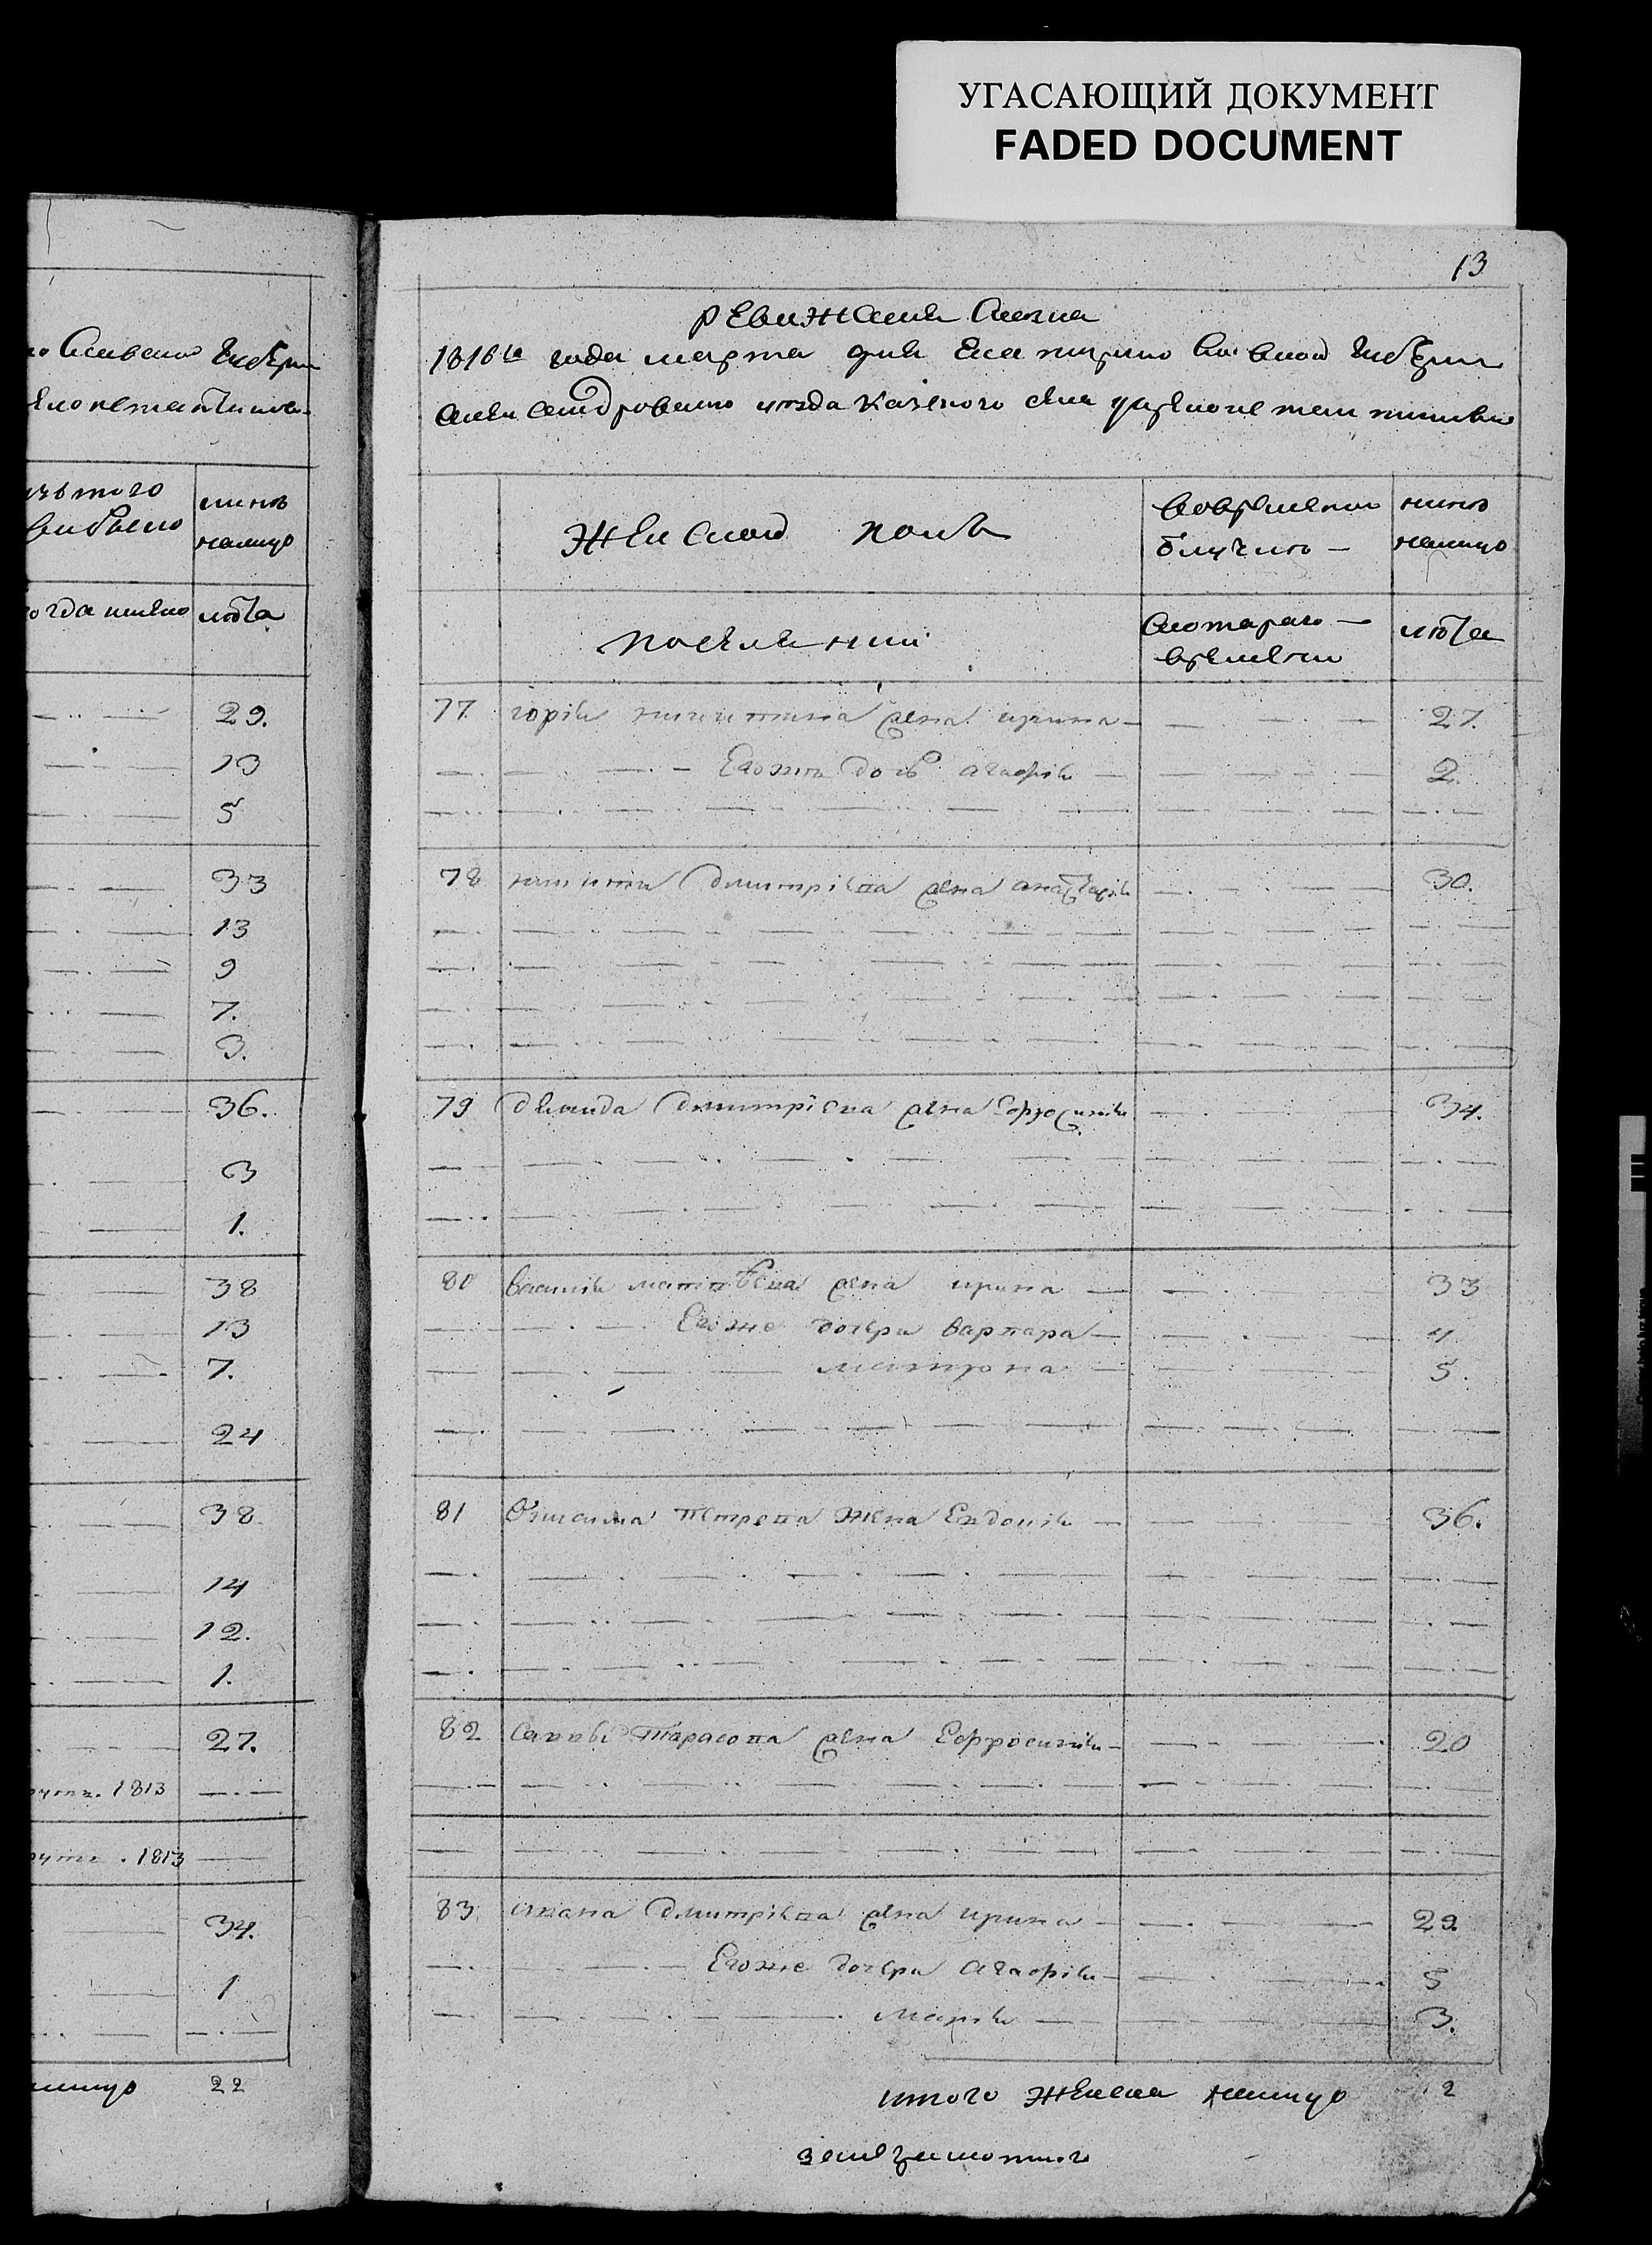 УГАСАЮЩИЙ ДОКУМЕНТ
FADED DOCUMENT
13
ревижская скаска
1816го года марта дня Екатеринославской губернии
александровского уезда казеного села
женской полъ
вовременной отлучке —
ныне налицо
поселянии
скотораго — времени
лета
77 горъя никитина жена ирина — 27.
Егожъ дочь агафия — 2.
78 никиты дмитриева жена анастасия 30.
79 демида дмитриева жена Еофросиния 34.
80 василя матвеева жена ирина — 33
Егоже дочери варвара — 11
матрона — 5.
81 Онисима петрова жена Евдокия — 36.
82 савы тарасова жена Еофросиния — 20
83 ивана дмитриева жена ирина — 29.
Егоже дочери агафия — 5
мария — 3.
итого женска налицо 12
губернии
изътого выбыло
ныне налицо
когда имено
лета
29.
13
5
33
13
9
7.
3.
36.
3
1.
38
13
7.
24
38
14
12.
1.
27.
1813
1813
34.
1
налицо 22